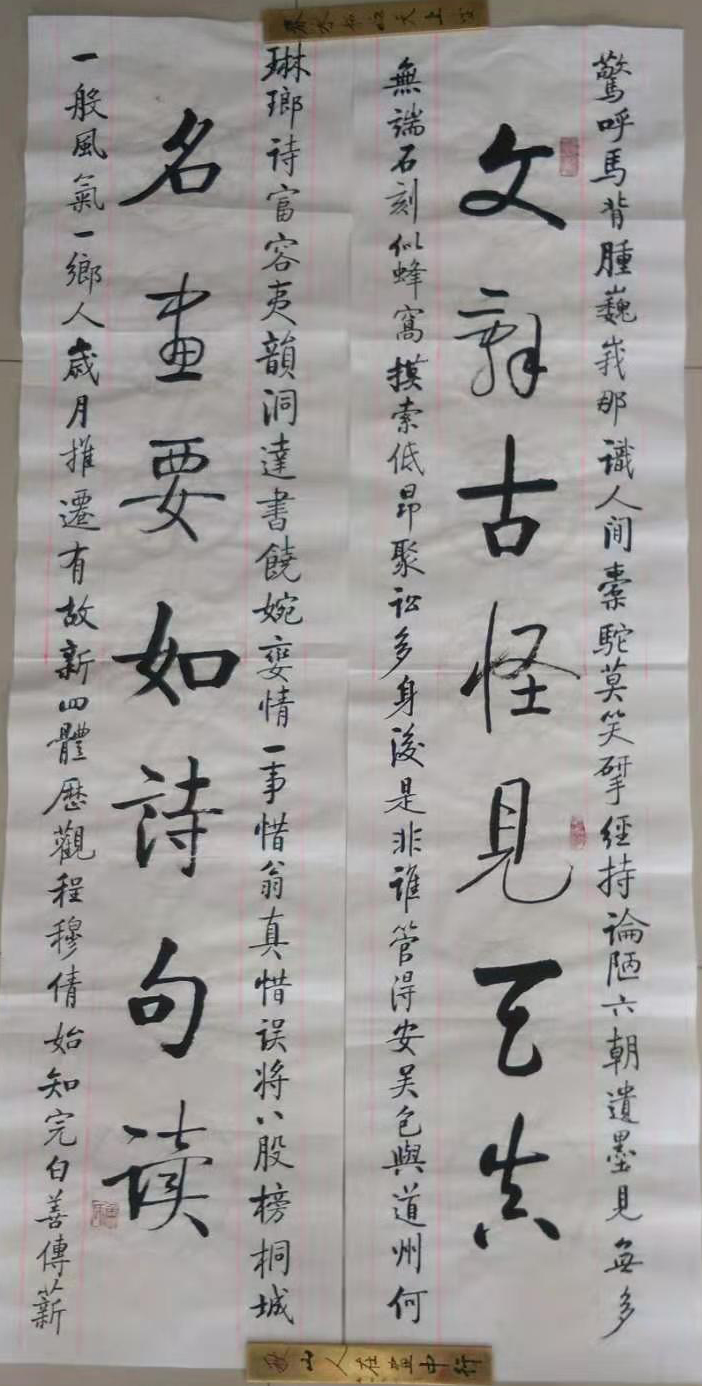 驚呼馬背腫巍峩那識人間橐駝莫笑揅經持論陋六朝遺墨見無多
文辭古怪見天真
無端石刻似蜂窩摸索低昂聚訟多身後是非誰管得安吳包與道州何
琳瑯詩富容夷韻洞達書饒婉孌情一事惜翁真惜誤將八股榜桐城
名畫要如詩句读
一般風氣一鄉人歲月推遷有故新四體歷觀程穆倩始知完白善傳薪
山人在笠中行